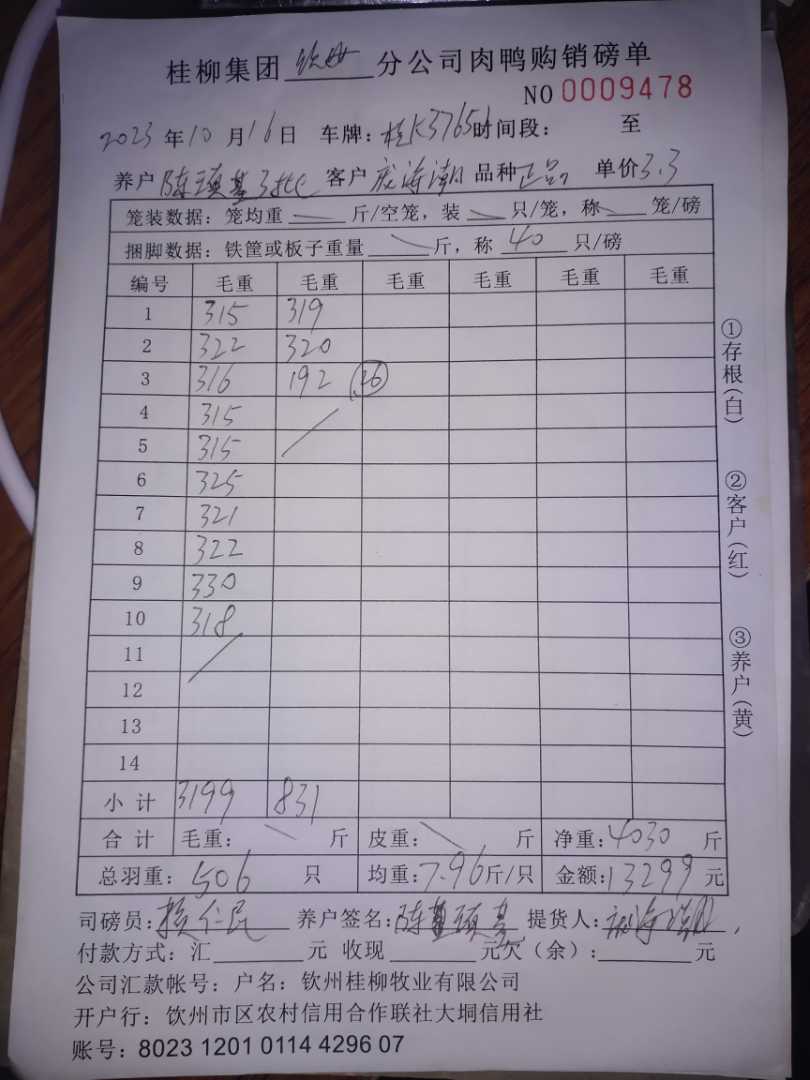 桂柳集团 钦州 分公司肉鸭购销磅单
NO 0009478
2023 年 10 月 16 日 车牌: 桂K37651 时间段: 至
养户 陈瑱基3批 客户 庞海潮 品种 正品 单价 3.3
笼装数据: 笼均重 斤/空笼, 装 只/笼, 称 笼/磅
捆脚数据: 铁筐或板子重量 斤, 称 40 只/磅
编号 毛重 毛重 毛重 毛重 毛重 毛重
1 315 319
2 322 320
3 316 192 26
4 315
5 315
6 325
7 321
8 322
9 330
10 318
11
12
13
14
小计 3199 831
合计 毛重: 斤 皮重: 斤 净重: 4030 斤
总羽重: 506 只 均重: 7.96 斤/只 金额: 13299 元
司磅员: 仁民 养户签名: 陈瑱基 提货人: 庞海潮
付款方式: 汇 元 收现 元欠(余): 元
公司汇款帐号: 户名: 钦州桂柳牧业有限公司
开户行: 饮州市区农村信用合作联社大垌信用社
账号: 8023 1201 0114 4296 07
①存根(白)
②客户(红)
③养户(黄)